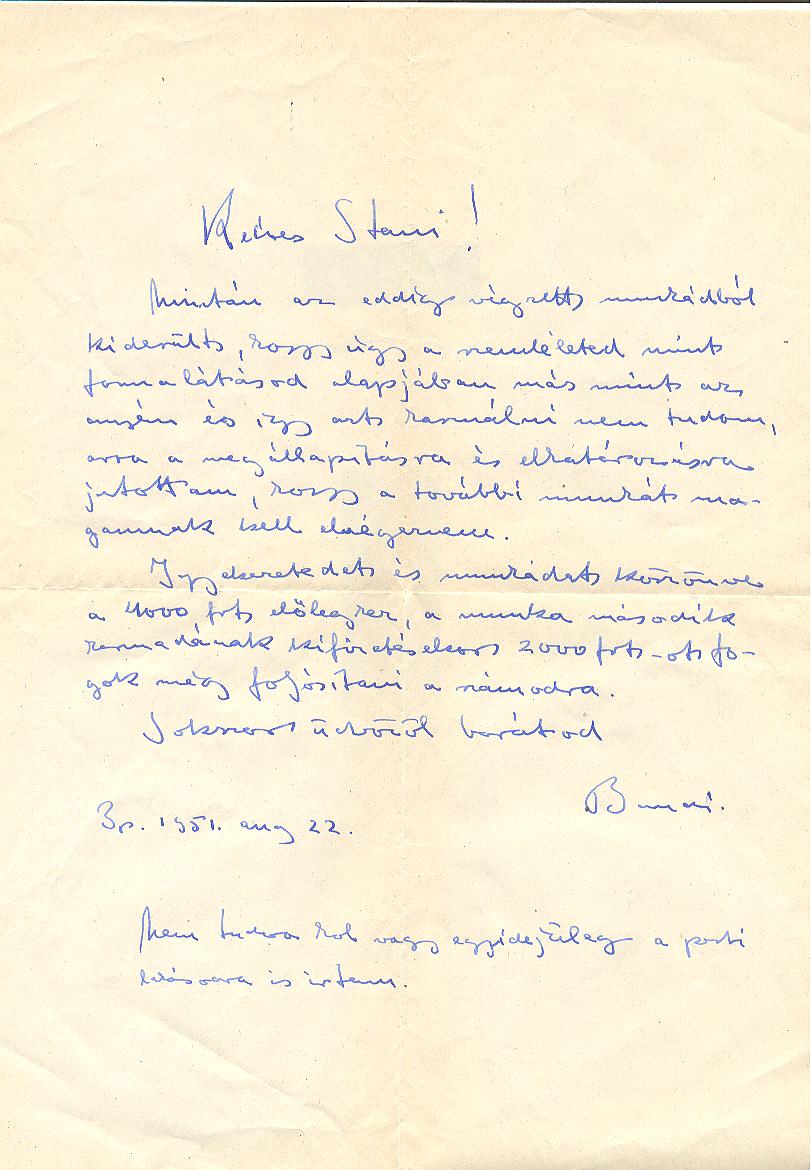 Kedves Stani!
Miután az eddig végzett munkádból
kiderült, hogy úgy a szemléleted mint
formalátásod alapjában más mint az
enyém és így azt használni nem tudom,
arra a megállapításra és elhatározásra
jutottam, hogy a további munkát ma-
gamnak kell elvégeznem.
Igyekezetedet és munkádat köszönve
a 4000 frt előleghez, a munka második
harmadának kifizetésekor 2000 frt-ot fo-
gok még folyósítani a számodra.
Sokszor üdvözöl barátod
Bp. 1951. aug 22.
Nem tudva hol vagy egyidejűleg a pesti
lakásodra is írtam.